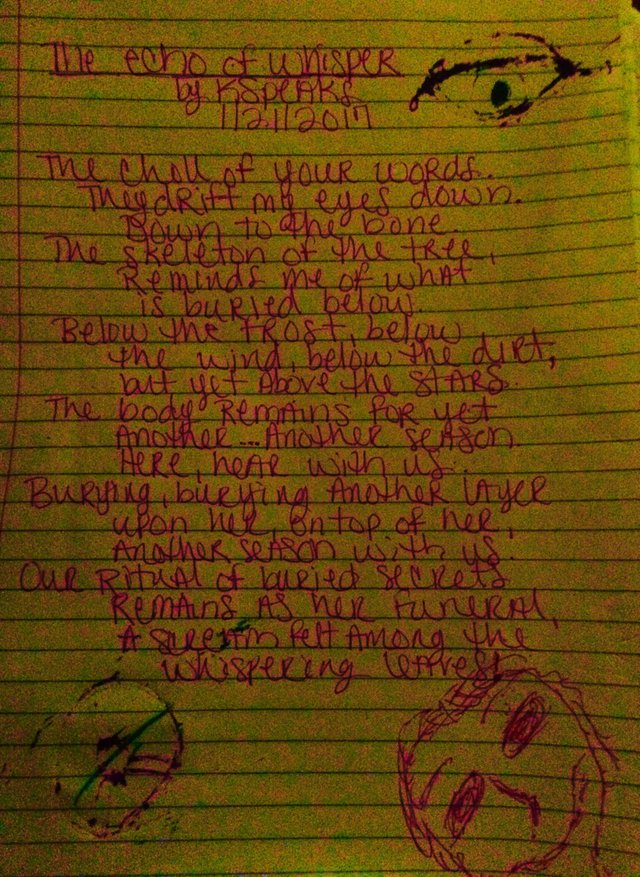 The echo of whisper
by KSpeaks
11/21/2017
The chall of your words.
They drift my eyes down.
Down to the bone.
The skeleton of the tree,
Reminds me of what
is buried below.
Below the frost, below
the wind, below the dirt,
but yet above the stars.
The body remains for yet
another... another season
Here, hear with us.
Burying, burying another layer
upon her, on top of her,
Another season with us.
Our ritual of buried secrets
Remains as her funeral,
A scream felt among the
whispering leaves.